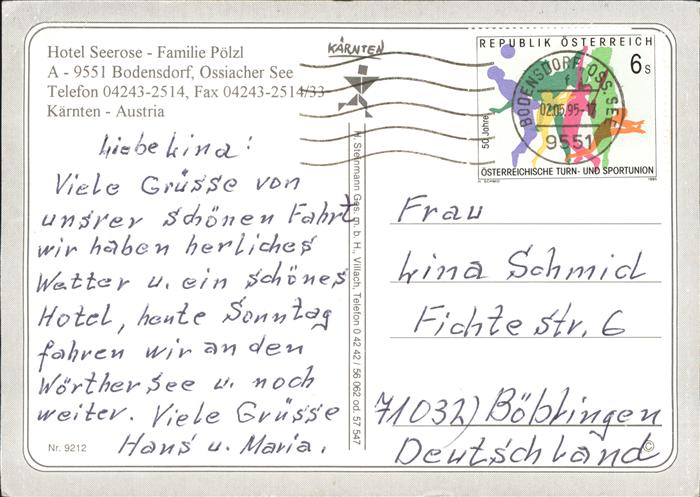 Hotel Seerose - Familie Pölzl
A - 9551 Bodensdorf, Ossiacher See
Telefon 04243-2514, Fax 04243-2514/33
Kärnten - Austria
KÄRNTEN
REPUBLIK ÖSTERREICH
6 s
50 Jahre
ÖSTERREICHISCHE TURN- UND SPORTUNION
H. SCHMID
1995
BODENSDORF, OSS. SEE
f
02.05.95-17
9551
Liebe Lina!
Viele Grüsse von
unsrer schönen Fahrt
wir haben herliches
Wetter u. ein schönes
Hotel, heute Sonntag
fahren wir an den
Wörther See u. noch
weiter. Viele Grüsse
Hans u. Maria.
Nr. 9212
H. Steinmann Ges. m. b. H., Villach, Telefon 0 42 42 / 56 062 od. 57 547
Frau
Lina Schmid
Fichtestr. 6
71032) Böblingen
Deutschland
©